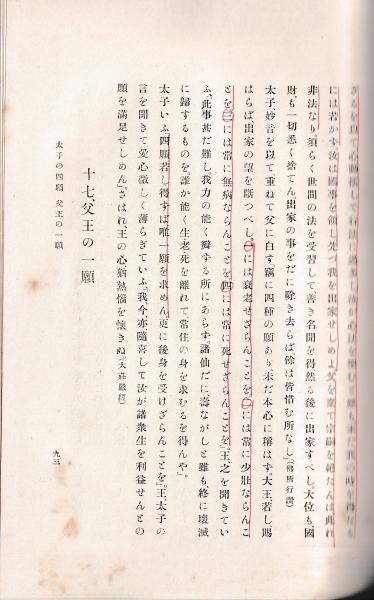 には若かず汝は國事を領し先づ我を出家せしめよ父を棄て宗嗣を絶たんは此れ
非法なり。須らく世間の法を受習して善き名聞を得然る後に出家すべし。大位も、國
財も、一切悉く捨てん、出家の事をだに除き去らば、餘は皆惜む所なし。(佛所行讚)
太子、妙音を以て重ねて父に白す、竊に四種の願あり、未だ本心に稱はず。大王若し賜
はらば、出家の望を斷つべし。一には衰老せざらんことを。二には常に少壯ならんこ
とを。三には常に無病ならんことを。四には常に死せざらんことを。」王、之を聞きてい
ふ、此事甚だ難し、我力の能く辦ずる所にあらず、諸仙だに壽ながしと雖も、終に壞滅
に歸するものを、誰か能く生老死を離れて常住の身を求むるを得んや。」
太子いふ、四願若し得ずば、唯一願を求めん、更に後身を受けざらんことを」。王、太子の
言を聞きて愛心微しく薄らぎていふ、「我、今亦隨喜して汝が諸衆生を利益せんとの
願を滿足せしめん」。さはれ、王の心猶熱惱を懷きぬ。(大莊嚴經)
十七 父王の一願
太子の四願 父王の一願
九三